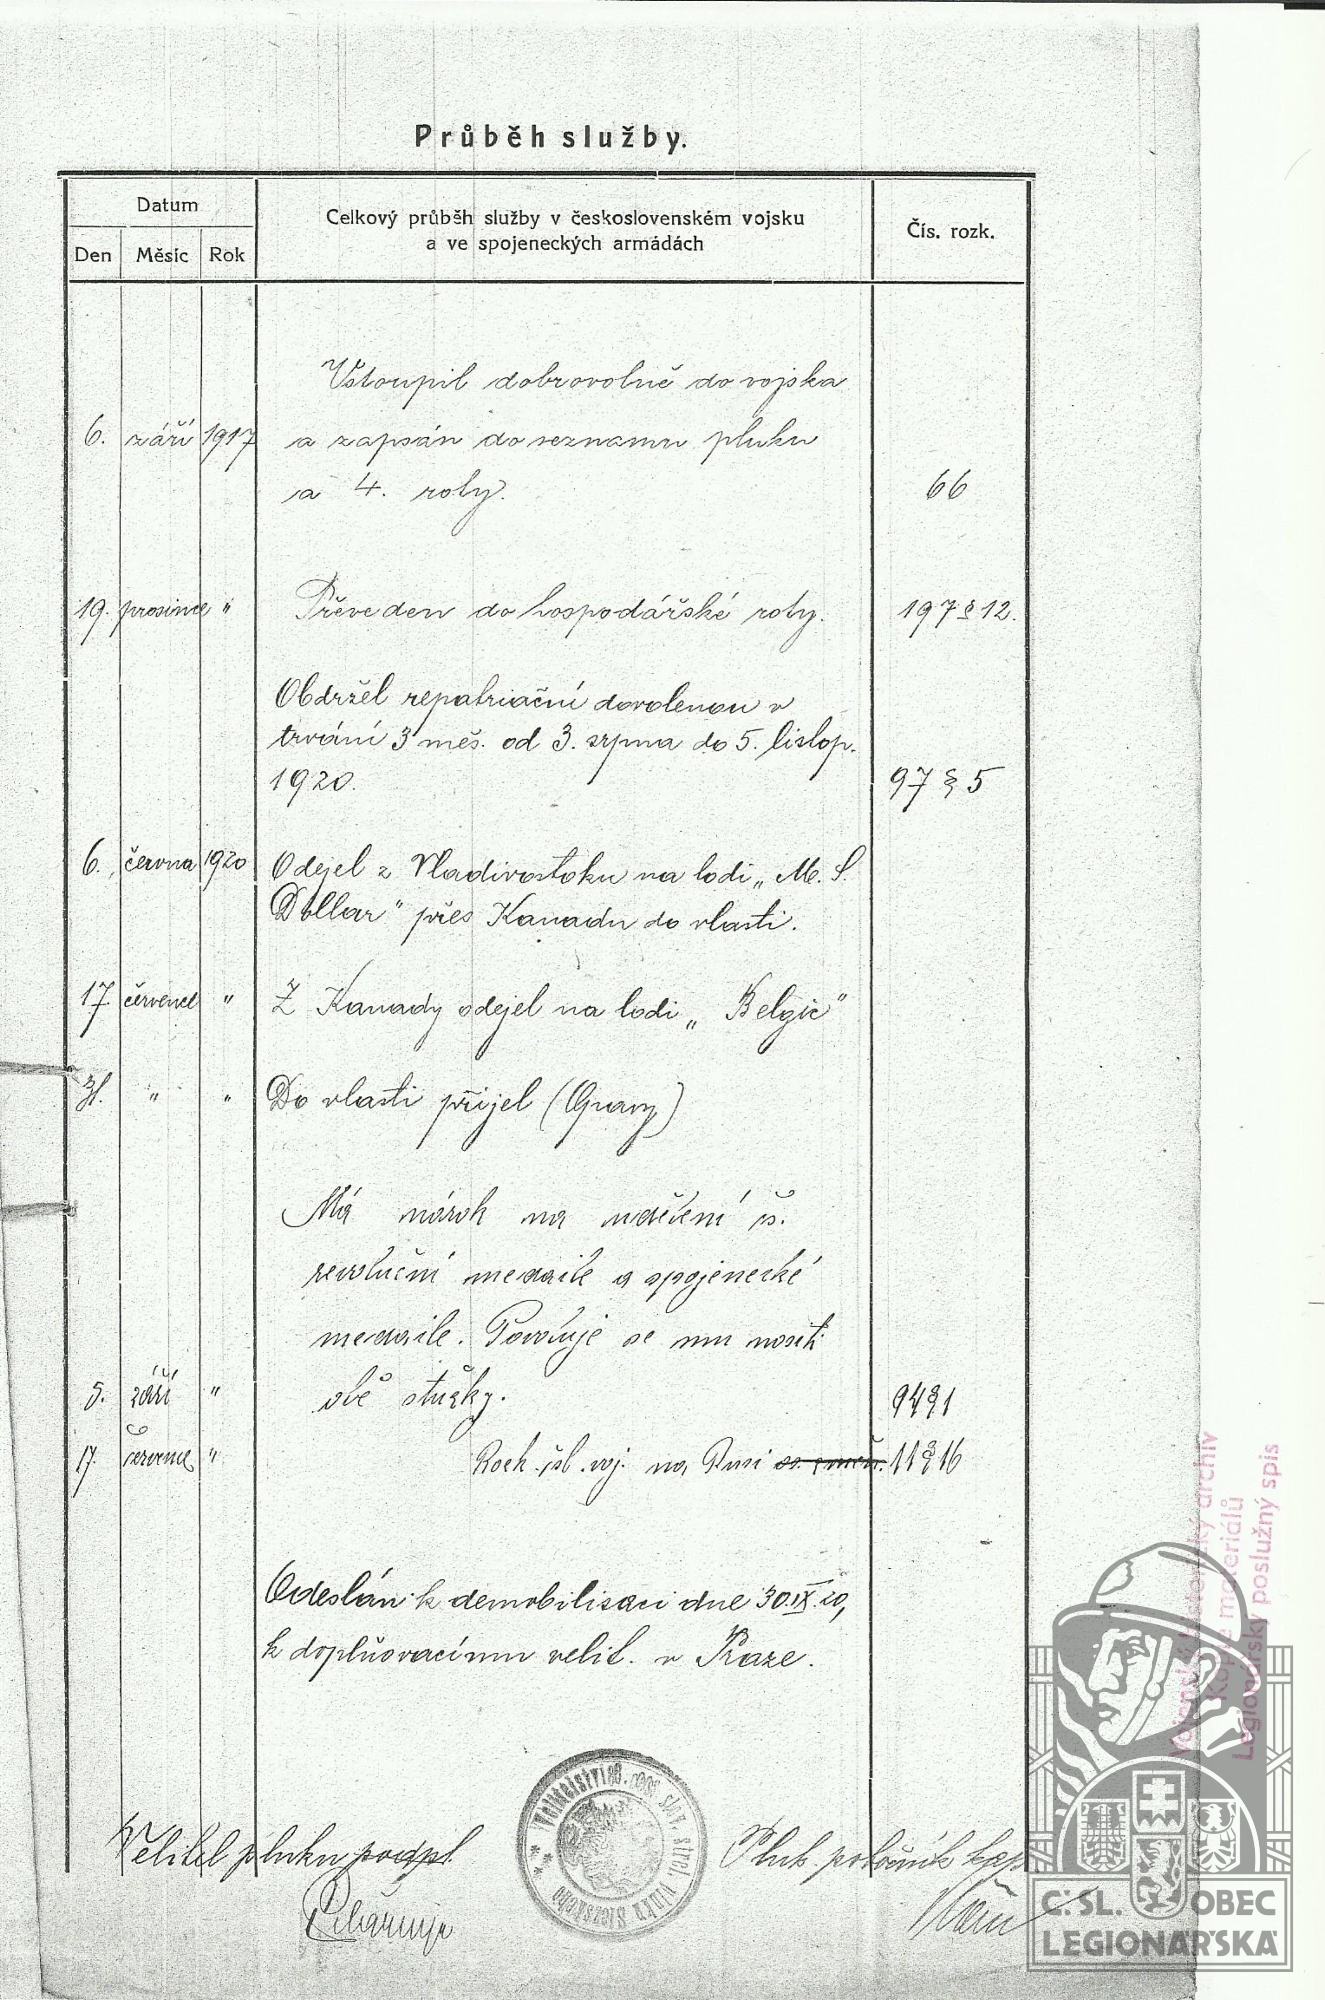 Průběh služby.
Datum
Den Měsíc Rok
Celkový průběh služby v československém vojsku
a ve spojeneckých armádách
Čís. rozk.
Vstoupil dobrovolně do vojska
6. září 1917 a zapsán do seznamu pluku
a 4. roty. 66
19. prosince " Převeden do hospodářské roty. 197 § 12.
Obdržel repatriační dovolenou v
trvání 3 měs. od 3. srpna do 5. listop.
1920. 97 § 5
6. června 1920 Odejel z Vladivostoku na lodi „M. S.
Dollar" přes Kanadu do vlasti.
17. července " Z Kanady odejel na lodi „Belgic"
31. " " Do vlasti přijel
Má nárok na udělení čs.
revoluční medaile a spojenecké
medaile. Povoluje se mu nositi
5. září " obě stužky. 94§1
17. července " čsl. voj. na Rusi 11§16
Odeslán k demobilisaci dne 30.IX.20,
k doplňovacímu velit. v Praze.
Velitel pluku podpl.
Pluk. pobočník kap.
Velitelství slov. střel. pluku Slezského
Vojenský historický archiv
Kopie materiálů
Legionářský poslužný spis
Č.SL. OBEC
LEGIONÁŘSKÁ